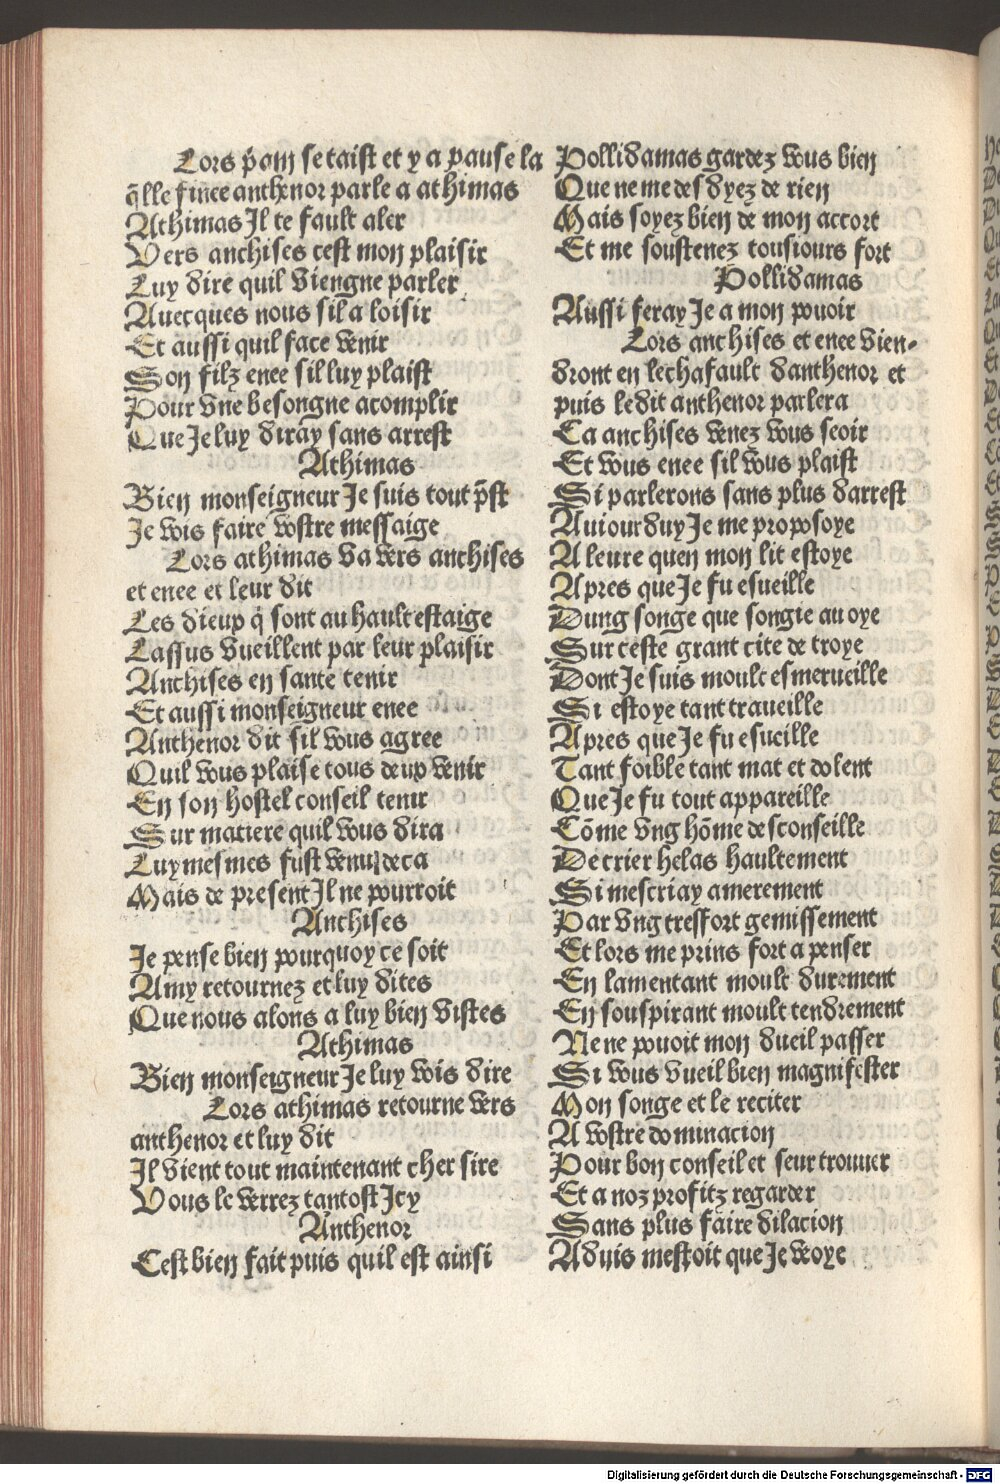 Lors p̃am se taist et y a pause la
q̃lle finee anthenor parle a athimas
Athimas Il te fault aler
Vers anchises cest mon plaisir
Luy dire quil viengne parler
Auecques nous sil a loisir
Et aussi quil face venir
Son filz enee sil luy plaist
Pour vne besongne acomplir
Que Je luy diray sans arrest
Athimas
Bien monseigneur Je suis tout p̃st
Je vois faire vostre messaige
Lors athimas va vers anchises
et enee et leur dit
Les dieux q̃ sont au hault estaige
Lassus vueillent par leur plaisir
Anchises en sante tenir
Et aussi monseigneur enee
Anthenor dit sil vous agree
Quil vous plaise tous deux venir
En son hostel conseil tenir
Sur matiere quil vous dira
Luy mesmes fust venu deca
Mais de present Il ne pourroit
Anchises
Je pense bien pourquoy ce soit
Amy retournez et luy dites
Que nous alons a luy bien vistes
Athimas
Bien monseigneur Je luy vois dire
Lors athimas retourne vers
anthenor et luy dit
Il vient tout maintenant cher sire
Vous le verrez tantost Icy
Anthenor
Cest bien fait puis quil est ainsi
Pollidamas gardez vous bien
Que ne me desdyez de rien
Mais soyez bien de mon accort
Et me soustenez tousiours fort
Pollidamas
Aussi feray Je a mon pouoir
Lors anchises et enee vien-
dront en lechafault danthenor et
puis ledit anthenor parlera
Ca anchises venez vous seoir
Et vous enee sil vous plaist
Si parlerons sans plus darrest
Auiourduy Je me proposoye
A leure quen mon lit estoye
Apres que Je fu esueille
Dung songe que songie auoye
Sur ceste grant cite de troye
Dont Je suis moult esmerueille
Si estoye tant traueille
Apres que Je fu esueille
Tant foible tant mat et dolent
Que Je fu tout appareille
Cõme vng hõme desconseille
De crier helas haultement
Si mescriay amerement
Par vng tresfort gemissement
Et lors me prins fort a penser
En lamentant moult durement
En souspirant moult tendrement
Ne ne pouoit mon dueil passer
Si vous vueil bien magnifester
Mon songe et le reciter
A vostre dominacion
Pour bon conseil et seur trouuer
Et a noz profitz regarder
Sans plus faire dilacion
Aduis mestoit que Je veoye
Digitalisierung gefördert durch die Deutsche Forschungsgemeinschaft - DFG